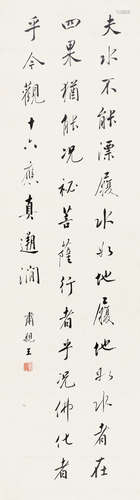 夫水不能漂履水如地履地如水者在
四果猶能况祕菩薩行者乎况佛化者
乎今觀十六應真遊澗 肅親王